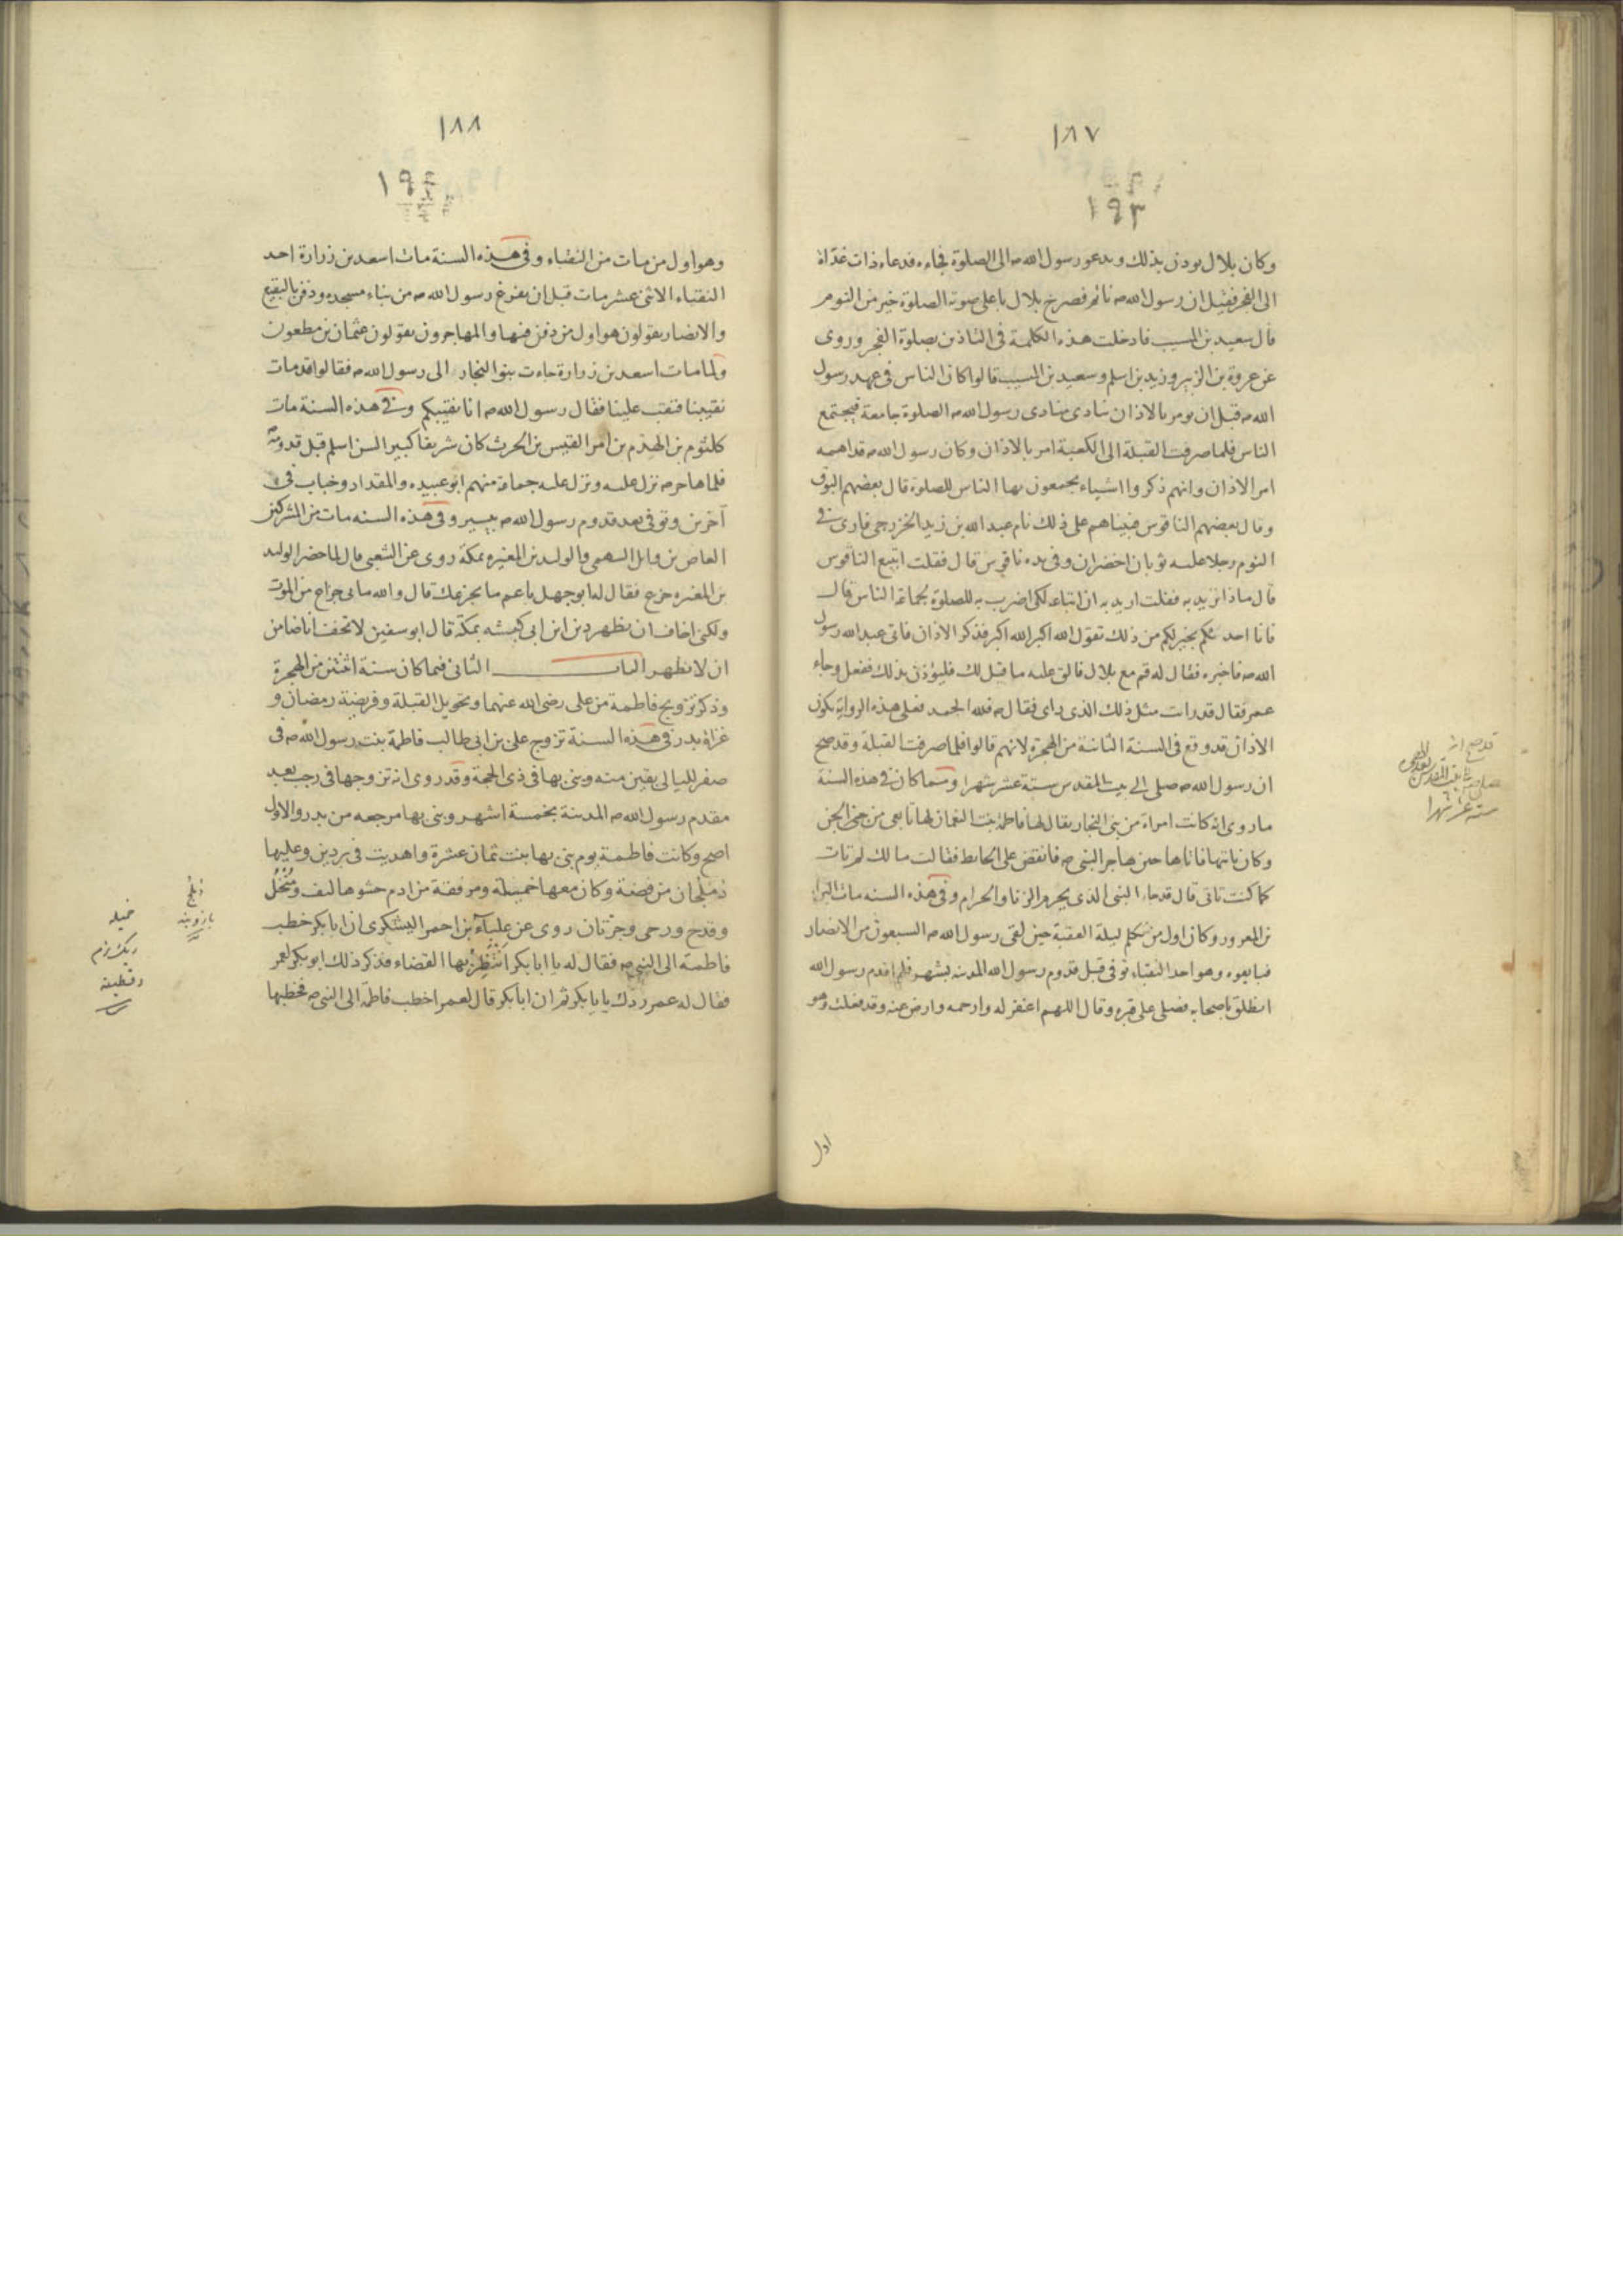 ١٨٧
١٩٣
وكان بلال يوذن بذلك ويدعو رسول الله ص الى الصلوة فجاءه فدعاه ذات غداة
الى الفجر فقيل ان رسول الله ص نائم فصرخ بلال باعلى صوته الصلوة خير من النوم
قال سعيد بن المسيب فادخلت هذه الكلمة فى التاذين بصلوة الفجر وروى
عن عروة بن الزبير وزيد بن اسلم وسعيد بن المسيب قالوا كان الناس فى عهد رسول
الله ص قبل ان يومر بالاذان ينادى منادى رسول الله ص الصلوة جامعة فيجتمع
الناس فلما صرفت القبلة الى الكعبة امر بالاذان وكان رسول الله ص قد اهمه
امر الاذان وانهم ذكروا اشياء يجمعون بها الناس للصلوة قال بعضهم البوق
وقال بعضهم الناقوس فبيناهم على ذلك نام عبد الله بن زيد الخزرجى فارى فى
النوم رجلا عليه ثوبان اخضران وفى يده ناقوس قال فقلت اتبيع الناقوس
قال ماذا تريد به فقلت اريد به ان ابتاعه لكى اضرب به للصلوة لجماعة الناس قال
فانا احدثكم بخير لكم من ذلك تقول الله اكبر الله اكبر فذكر الاذان فاتى عبد الله رسول
الله ص فاخبره فقال له قم مع بلال فالق عليه ما قيل لك فليؤذن بذلك ففعل وجاء
عمر فقال قد رات مثل ذلك الذى راى فقال ص فلله الحمد فعلى هذه الرواية يكون
الاذان قد وقع فى السنة الثانية من الهجرة لانهم قالوا فلما صرفت القبلة وقد صح
ان رسول الله ص صلى الى بيت المقدس ستة عشر شهرا ومما كان فى هذه السنة
ما روى انه كانت امراة من بنى النجار يقال لها فاطمة بنت النعمان لها تابع من الجن
وكان ياتيها فاتاها حين هاجر النبى ص فانقض على الحائط فقالت ما لك لم تات
كما كنت تاتى قال قد جاء النبى الذى يحرم الزنا والحرام وفى هذه السنه مات البراء
بن المعرور وكان اول من تكلم ليلة العقبة حين لقى رسول الله ص السبعون من الانصار
فبايعوه وهو احد النقباء توفى قبل قدوم رسول الله المدينه بشهر فلما قدم رسول الله
انطلق باصحابه فصلى على قبره وقال اللهم اغفر له وارحمه وارض عنه وقد فعلت وهو
اول
قد صح انه
ستة عشر شهرا
١٨٨
١٩٤
وهو اول من مات من النقباء وفى هذه السنة مات اسعد بن زرارة احد
النقباء الاثنى عشر مات قبل ان يفرغ رسول الله ص من بناء مسجده ودفن بالبقيع
والانصار يقولون هو اول من دفن فيها والمهاجرون يقولون عثمان بن مظعون
ولما مات اسعد بن زرارة جاءت بنوا النجار الى رسول الله ص فقالوا قد مات
نقيبنا فنقب علينا فقال رسول الله ص انا نقيبكم وفى هذه السنة مات
كلثوم بن الهدم بن امرا القيس بن الحرث كان شريفا كبير السن اسلم قبل قدومه
فلما هاجر ص نزل عليه ونزل عليه جماعة منهم ابو عبيده والمقداد وخباب فى
آخرين وتوفى بعد قدوم رسول الله ص بيسير وفى هذه السنه مات من المشركين
العاص بن وايل السهمى والوليد بن المغيره بمكة روى عن الشعبى قال لما حضر الوليد
بن المغيره جزع فقال له ابو جهل يا عم ما يجزعك قال والله ما بى جزع من الموت
ولكنى اخاف ان يظهر دين ابن ابى كبشه بمكة قال ابو سفين لا تخف انا ضامن
ان لا يظهر الباب الثانى فيما كان سنة اثنتين من الهجرة
وذكر تزويج فاطمة من على رضى الله عنهما وتحويل القبلة وفريضة رمضان و
غزاة بدر فى هذه السنة تزوج على بن ابى طالب فاطمة بنت رسول الله ص فى
صفر لليالى بقين منه وبنى بها فى ذى الحجة وقد روى انه تزوجها فى رجب بعد
مقدم رسول الله ص المدينة بخمسة اشهر وبنى بها مرجعه من بدر والاول
اصح وكانت فاطمة يوم بنى بها بنت ثمان عشرة واهديت فى بردين وعليها
دملجان من فضة وكان معها خميلة ومرفقة من ادم حشوها ليف ومنخل
وقدح ورحى وجرتان روى عن علباء بن احمر اليشكرى ان ابا بكر خطب
فاطمة الى النبى ص فقال له يا ابا بكر انتظر بها القضاء فذكر ذلك ابو بكر لعمر
فقال له عمر ردك يا با بكر ثم ان ابا بكر قال لعمر اخطب فاطمة الى النبى ص فخطبها
خميله